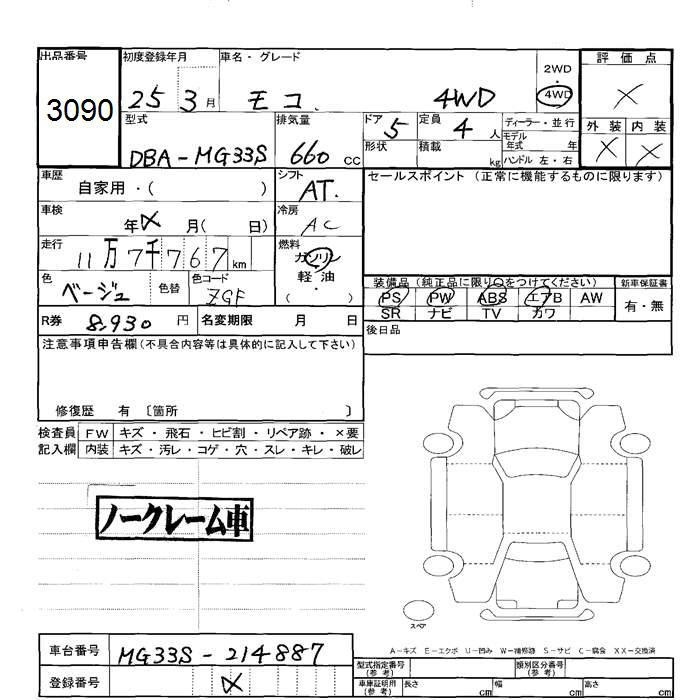 出品番号 初度登録年月 車名・グレード 評価点
3090 25 3月 モコ 4WD 2WD 4WD ×
型式 DBA-MG33S 排気量 660 cc ドア 5 定員 4 人 ディーラー・並行 外装 内装
形状 積載 kg モデル年式 年 ハンドル 左・右 × ×
車歴 自家用・( ) シフト AT. セールスポイント (正常に機能するものに限ります)
車検 年 × 月( 日) 冷房 AC
走行 11万7千767km 燃料 ガソリン 軽・油 ( ・ )
色 ベージュ 色替 色コード ZGF
装備品 (純正品に限り○をつけてください) 新車保証書
PS PW ABS エアB AW 有・無
SR ナビ TV カワ
R券 8,930 円 名変期限 月 日
後日品
注意事項申告欄(不具合内容等は具体的に記入して下さい)
修復歴 有 〔箇所 〕
検査員 FW キズ・飛石・ヒビ割・リペア跡・×要
記入欄 内装 キズ・汚レ・コゲ・穴・スレ・キレ・破レ
ノークレーム車
スペア
A-キズ E-エクボ U-凹み W-補修跡 S-サビ C-腐食 XX-交換済
車台番号 MG33S-214887
登録番号 ×
型式指定番号 (参考) 類別区分番号 (参考)
車庫証明用 (参考) 長さ cm 幅 cm 高さ cm